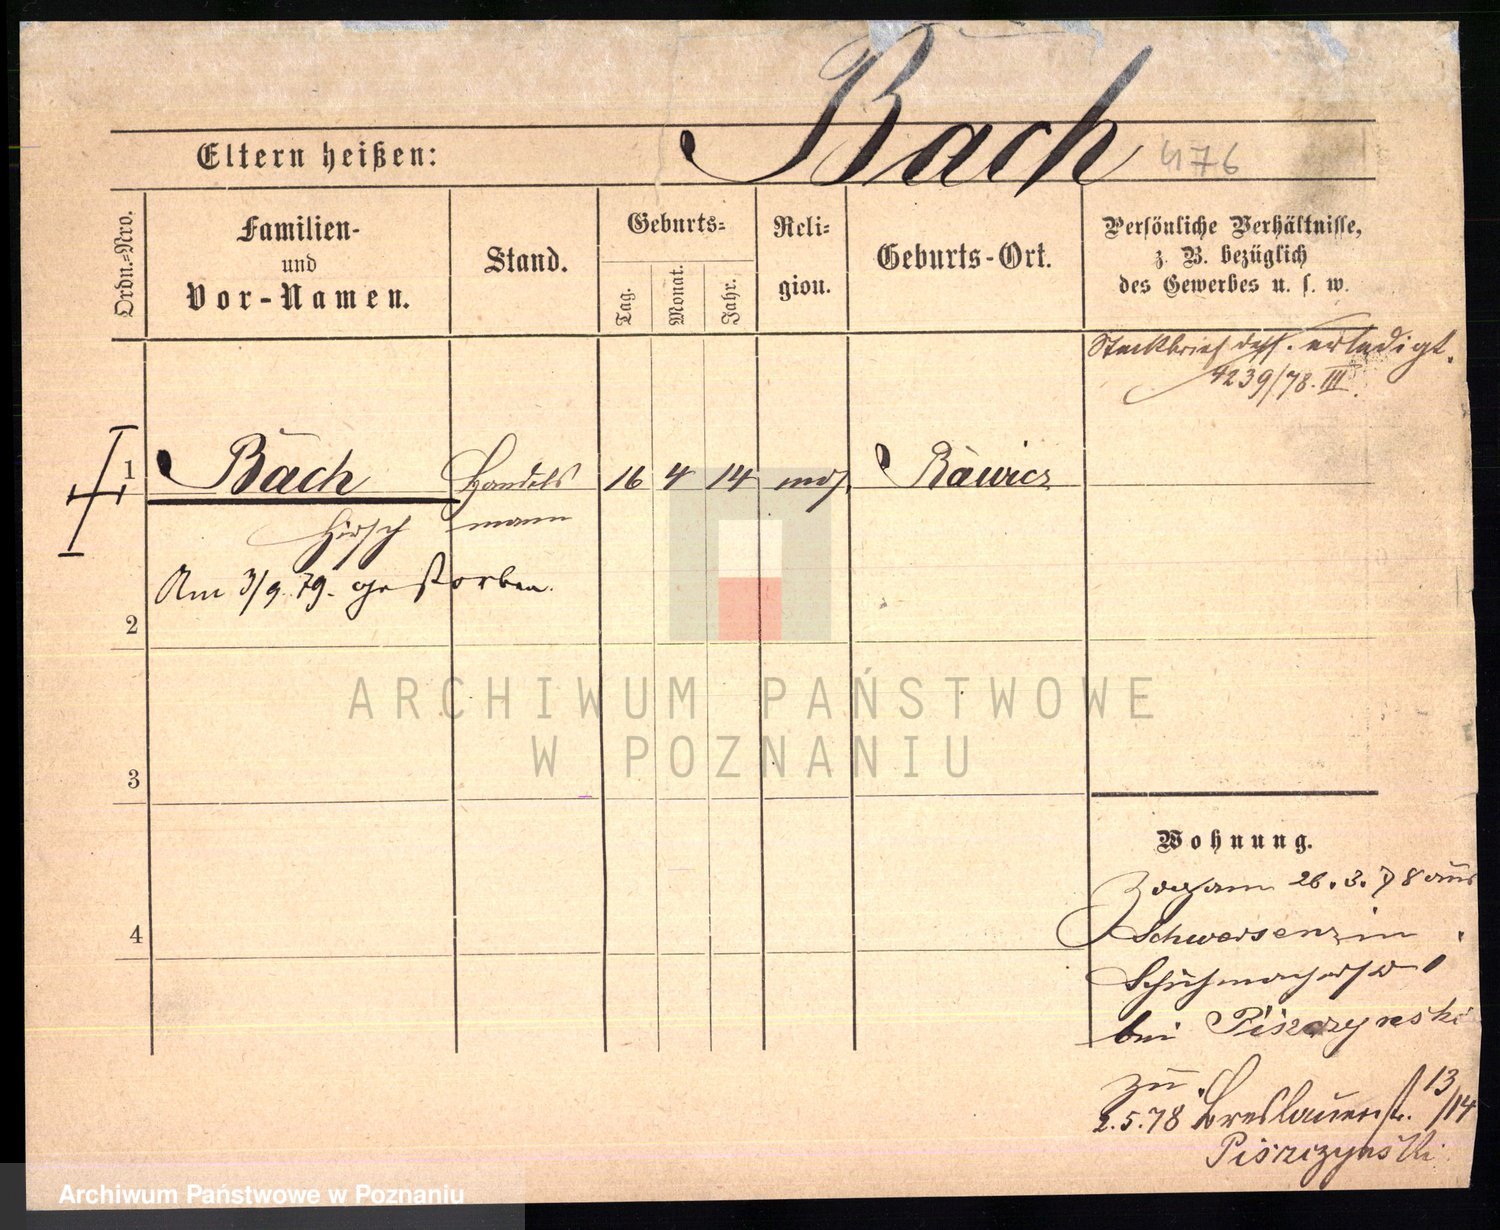 Bach
476
Eltern heißen:
Ordn.=Nro.
Familien-
und
Vor-Namen.
Stand.
Geburts=
Tag.
Monat.
Jahr.
Reli=
gion.
Geburts-Ort.
Persönliche Verhältnisse,
z. B. bezüglich
des Gewerbes u. s. w.
Steckbrief erledigt.
4239/78. III.
1 Bach Handels 16 4 14 mos. Rawicz
Hirsch mann
Am 3/9. 79. gestorben.
2
3
4
ARCHIWUM PAŃSTWOWE
W POZNANIU
Wohnung.
Zog am 26. 3. 78 aus
Schwersenz in
bei Pisczynski
zu
2.5.78 Breslauerstr. 13/14
Pisczynski
Archiwum Państwowe w Poznaniu